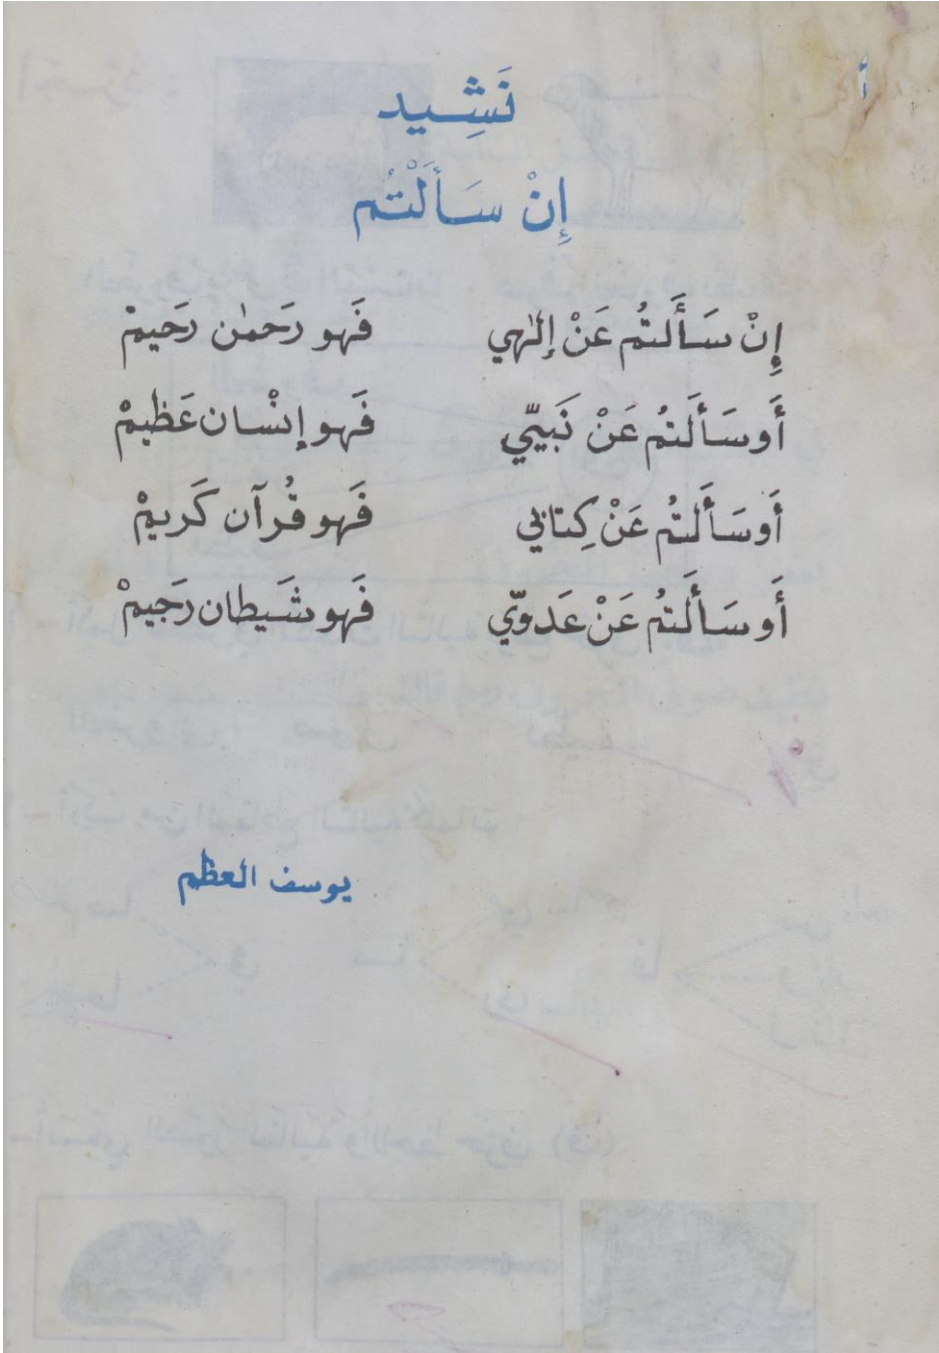 أ
نَشِيد
إِنْ سَأَلْتُم
إِنْ سَأَلتُم عَنْ إِلٰهي فَهو رَحمٰن رَحيمْ
أَو سَألَتُم عَنْ نَبيّي فَهو إنْسان عَظيمْ
أَو سَأَلتُم عَنْ كِتابي فَهو قُرآن كَريمْ
أَو سَأَلتُم عَنْ عَدوّي فَهو شَيطان رَجيمْ
يوسف العظم